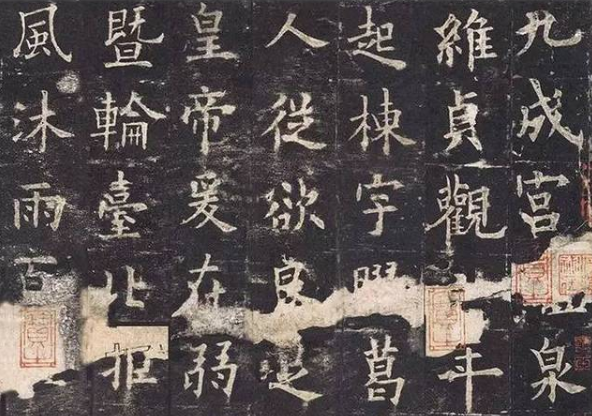 九成宮泉
維貞觀年
起棟宇葛
人從欲良足
皇帝爰在弱
暨輪臺北拒
風沐雨百